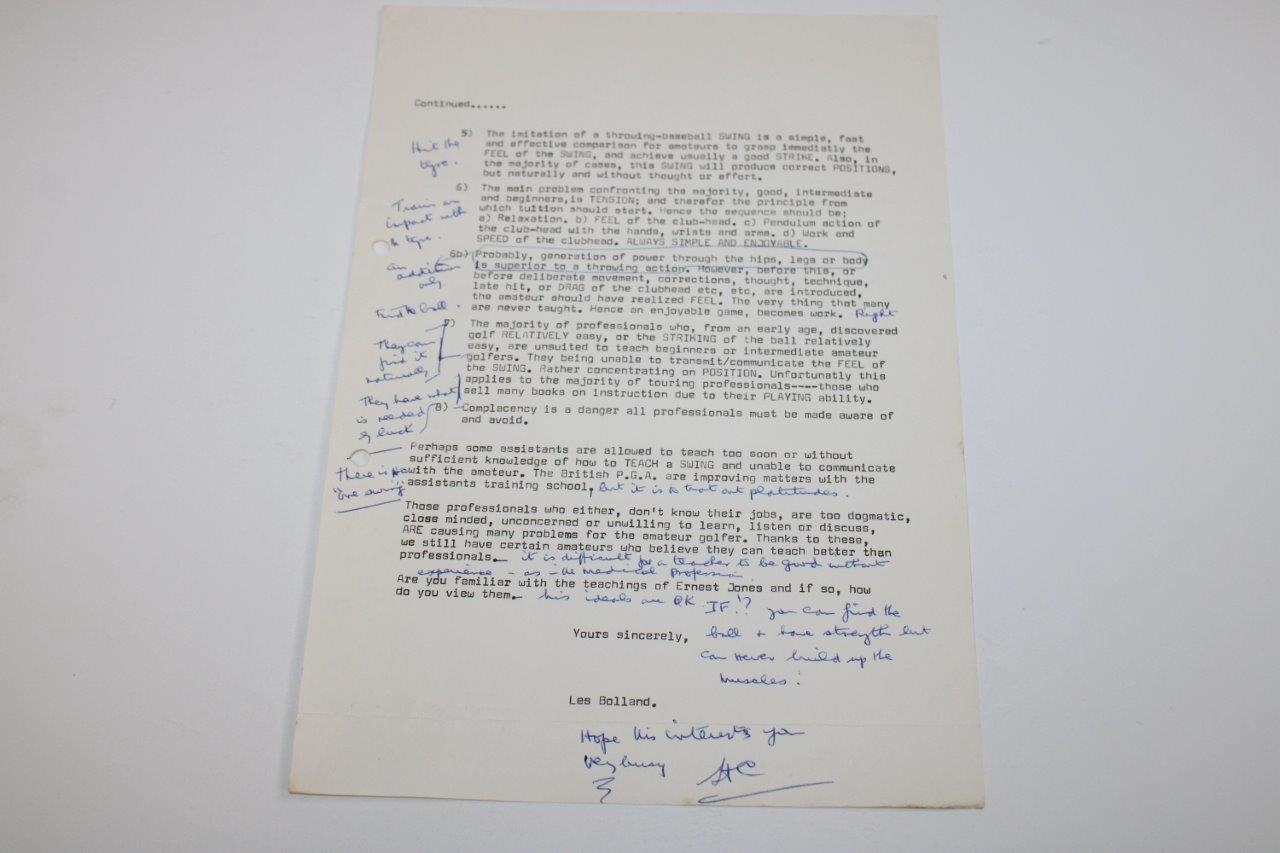 Continued......
5) The imitation of a throwing-baseball SWING is a simple, fast
and effective comparison for amateurs to grasp immediatly the
FEEL of the SWING, and achieve usually a good STRIKE. Also, in
the majority of cases, this SWING will produce correct POSITIONS,
but naturally and without thought or effort.
Hit the
tyre.
6) The main problem confronting the majority, good, intermediate
and beginners,is TENSION; and therefor the principle from
which tuition should start. Hence the sequence should be;
a) Relaxation. b) FEEL of the club-head. c) Pendulum action of
the club-head with the hands, wrists and arms. d) Work and
SPEED of the clubhead. ALWAYS SIMPLE AND ENJOYABLE.
Train on
impact with
a tyre.
6b) Probably, generation of power through the hips, legs or body
is superior to a throwing action. However, before this, or
before deliberate movement, corrections, thought, technique,
late hit, or DRAG of the clubhead etc, etc, are introduced,
the amateur should have realized FEEL. The very thing that many
are never taught. Hence an enjoyable game, becomes work. Right
an
addition
only.
Find the ball.
7) The majority of professionals who, from an early age, discovered
golf RELATIVELY easy, or the STRIKING of the ball relatively
easy, are unsuited to teach beginners or intermediate amateur
golfers. They being unable to transmit/communicate the FEEL of
the SWING. Rather concentrating on POSITION. Unfortunatly this
applies to the majority of touring professionals----those who
sell many books on instruction due to their PLAYING ability.
They can
find it
naturally
8) Complacency is a danger all professionals must be made aware of
and avoid.
They have what
is needed
by luck
Perhaps some assistants are allowed to teach too soon or without
sufficient knowledge of how to TEACH a SWING and unable to communicate
with the amateur. The British P.G.A. are improving matters with the
assistants training school, but it is to trot out platitudes.
There is no
"one swing"
Those professionals who either, don't know their jobs, are too dogmatic,
close minded, unconcerned or unwilling to learn, listen or discuss,
ARE causing many problems for the amateur golfer. Thanks to these,
we still have certain amateurs who believe they can teach better than
professionals. it is difficult for a teacher to be good without
experience - as - the medical profession
Are you familiar with the teachings of Ernest Jones and if so, how
do you view them. his ideals are OK. IF!? you can find the
ball + have strength but
can never build up the
muscles!
Yours sincerely,
Les Bolland.
Hope this interests you
Very busy
HC